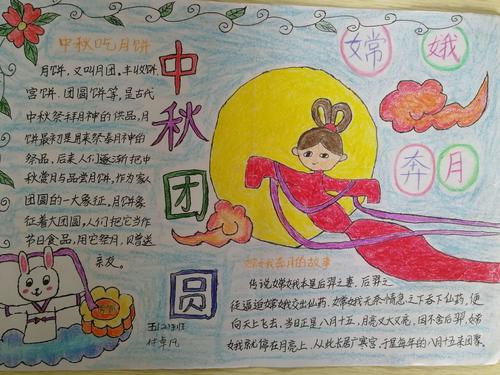 中秋吃月饼
月饼,又叫月团,丰收饼,
宫饼、团圆饼等,是古代
中秋祭拜月神的供品,月
饼最初是用来祭奉月神的
祭品,后来人们逐渐把中
秋赏月与品尝月饼,作为家人
团圆的一大象征,月饼象
征着大团圆,人们把它当作
节日食品,用它祭月,赠送
亲友。
中
秋
团
圆
嫦 娥
奔 月
嫦娥奔月的故事
传说嫦娥本是后羿之妻,后羿之
徒逼迫嫦娥交出仙药,嫦娥无奈情急之下吞下仙药,便
向天上飞去,当日正是八月十五,月亮又大又亮,因不舍后羿,嫦
娥就停在月亮上,从此长居广寒宫,于是每年的八月十五来团聚,